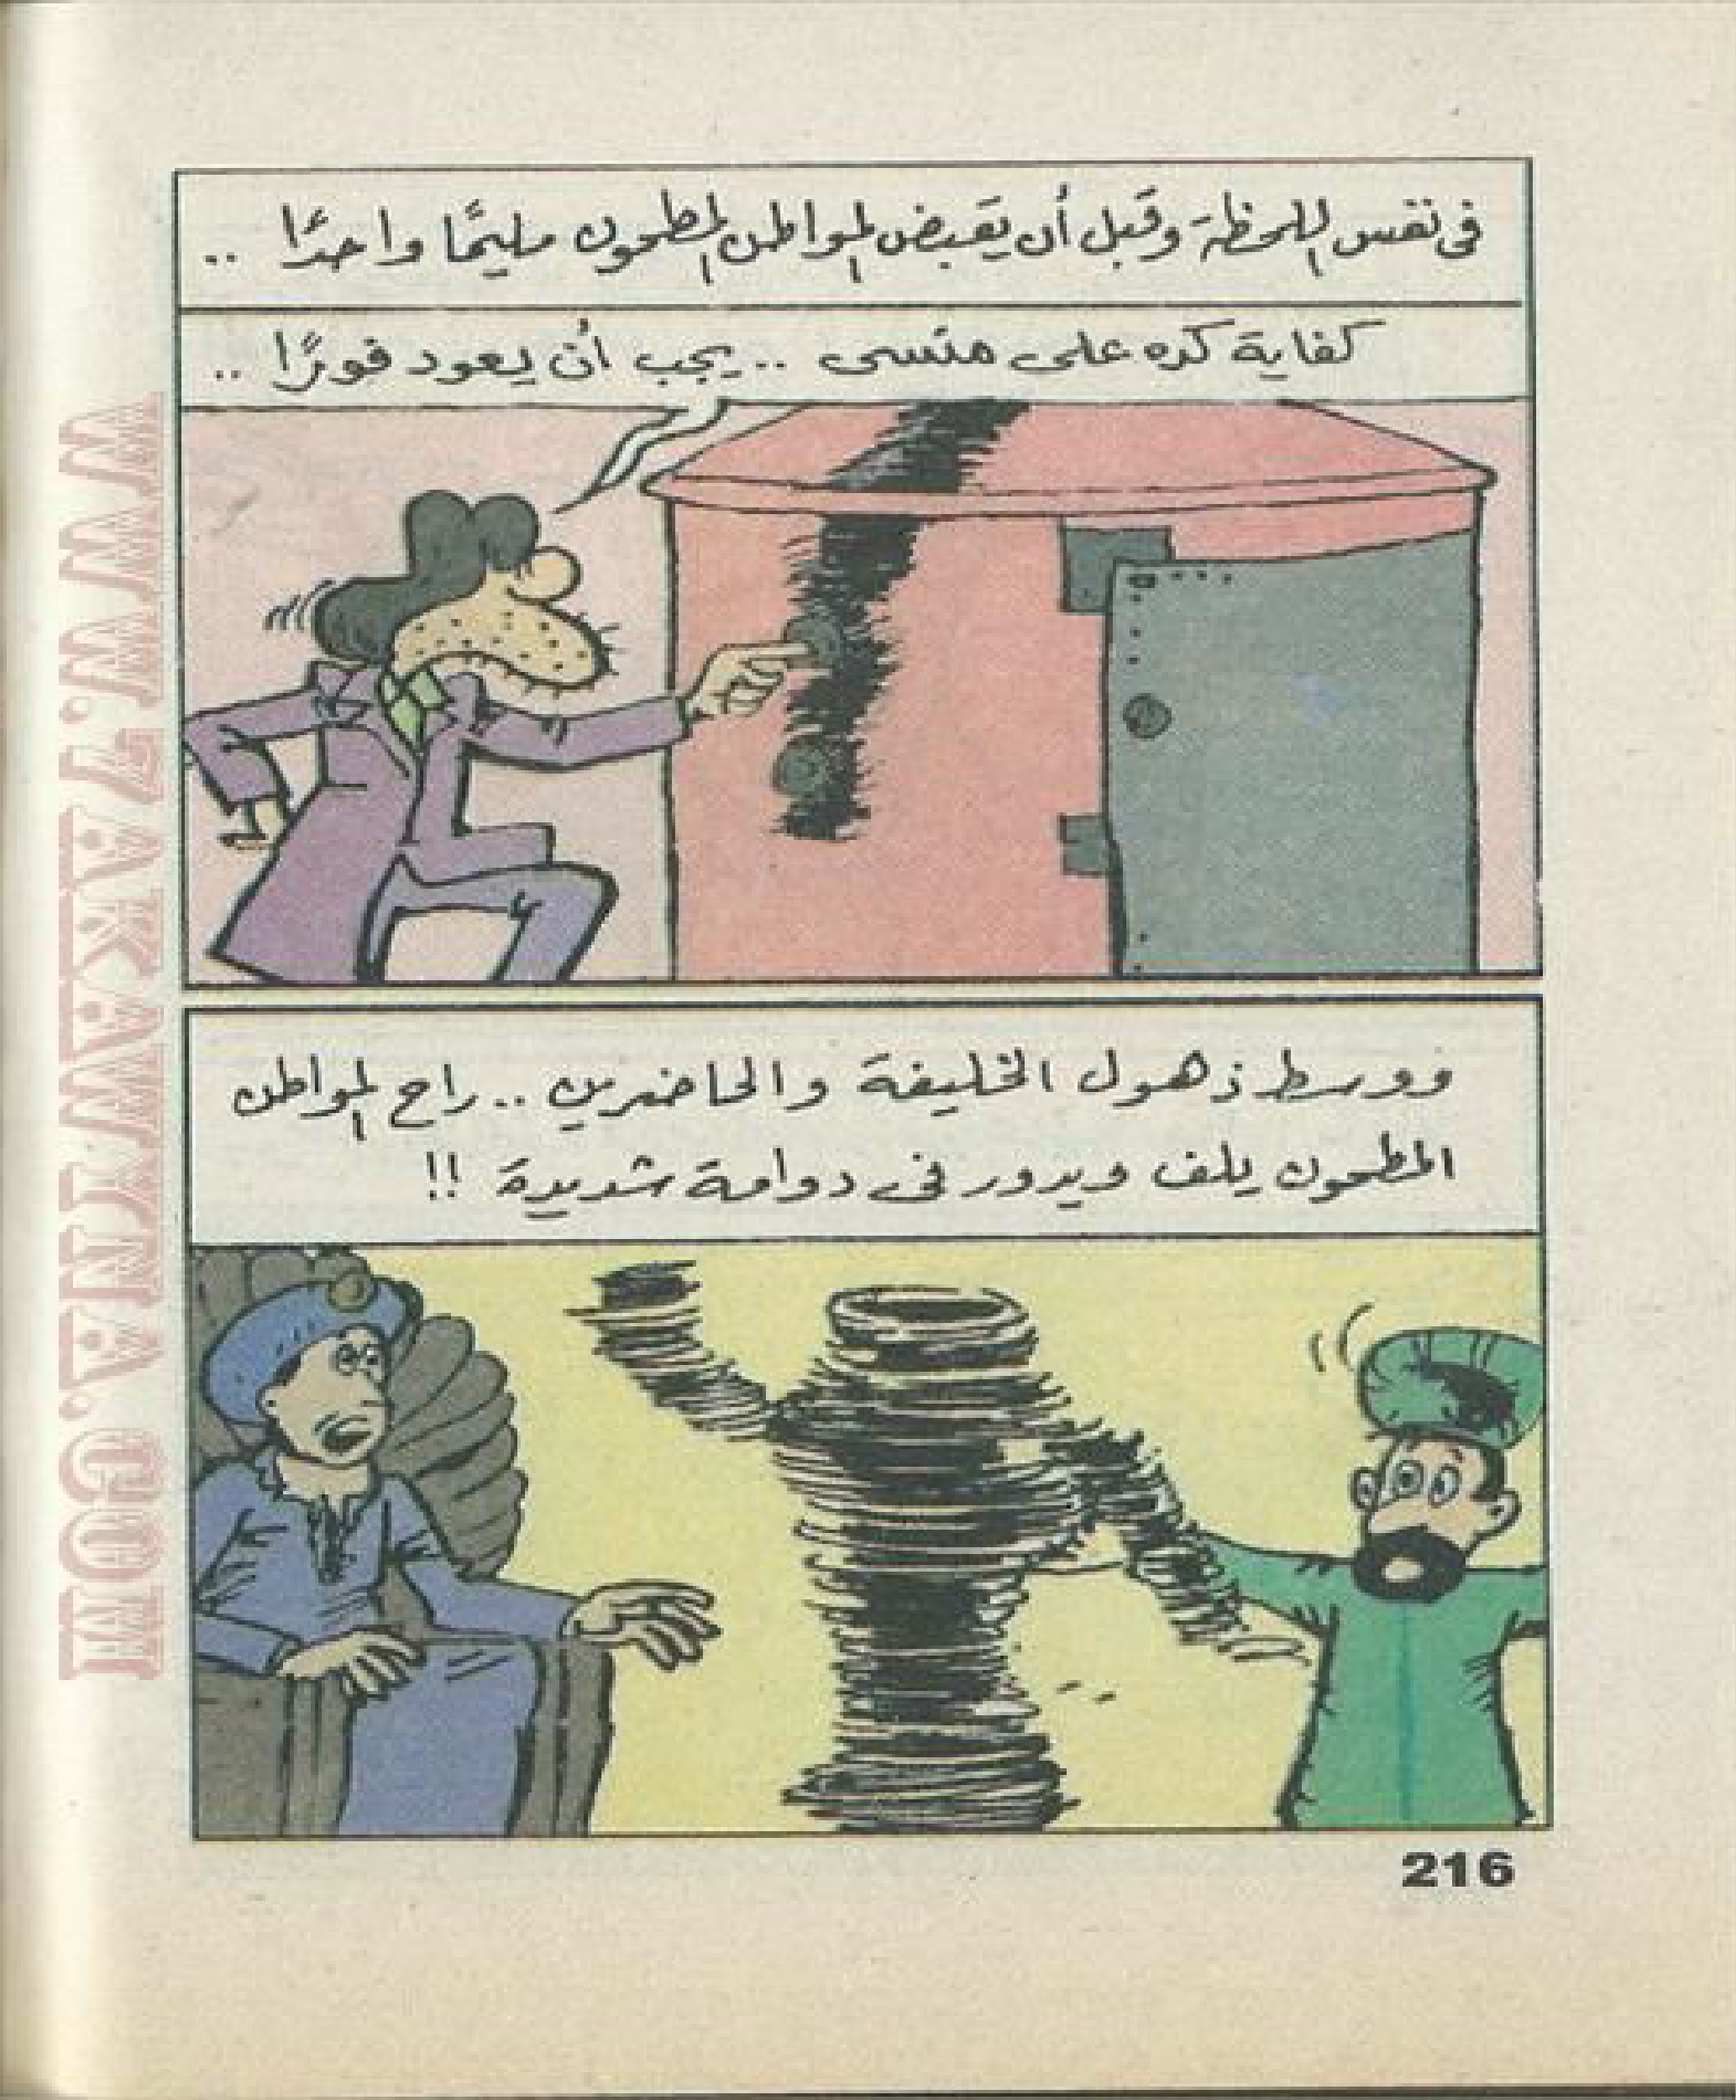 فى نفس اللحظة وقبل أن يقبض المواطن المطحون مليمًا واحدًا ..
كفاية كده على منسى .. يجب أن يعود فورًا ..
ووسط ذهول الخليفة والحاضرين .. راح المواطن
المطحون يلف ويدور فى دوامة شديدة !!
216
WWW.7AKAWINA.COM